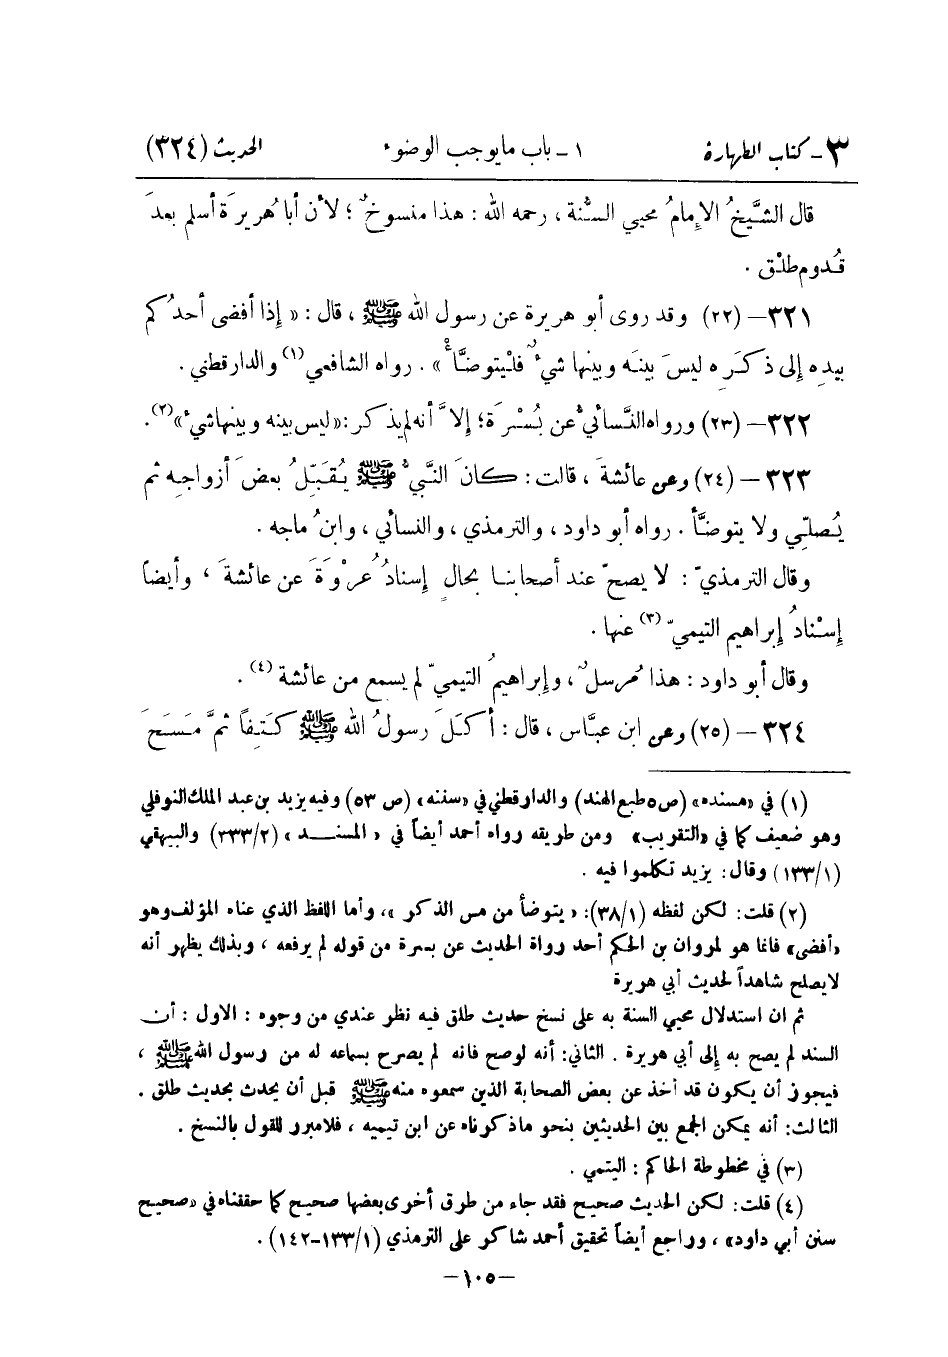 ٣ - كتاب الطهارة ١ - باب مايوجب الوضوء الحديث (٣٢٤)
قال الشَّيخُ الإِمامُ محيي السنَّة ، رحمه الله : هذا منسوخٌ ؛ لأن أبا هُريرَة أسلم بعدَ
قُدومِ طلْق .
٣٢١ – (٢٢) وقد روى أبو هريرة عن رسول الله ﷺ ، قال : « إذا أفضى أحدُكم
بيدِه إلى ذكَرِه ليسَ بينَه وبينها شيءٌ فلْيتوضَّأْ » . رواه الشافعي (١) والدارقطني .
٣٢٢ – (٢٣) ورواه النَّسائيُّ عن بُسْرَة؛ إلاَّ أنه لم يذكر : «ليس بينه وبينها شيء» (٢).
٣٢٣ – (٢٤) وعن عائشةَ ، قالت : كانَ النَّبيُّ ﷺ يُقَبِّلُ بعضَ أزواجِه ثم
يُصلّي ولا يتوضَّأ . رواه أبو داود ، والترمذي ، والنسائي ، وابنُ ماجه .
وقال الترمذيّ : لا يصحّ عند أصحابنا بحالٍ إسنادُ عُرْوَةَ عن عائشةَ ، وأيضاً
إسْنادُ إبراهيم التيميّ (٣) عنها .
وقال أبو داود : هذا مُرسلٌ ، وإبراهيمُ التيميّ لم يسمع من عائشة (٤) .
٣٢٤ – (٢٥) وعن ابن عبَّاس ، قال : أكَلَ رسولُ الله ﷺ كَتِفاً ثمَّ مَسَحَ
(١) في «مسنده» (ص٥ طبع الهند) والدارقطني في «سننه» (ص ٥٣) وفيه يزيد بن عبد الملك النوفلي
وهو ضعيف كما في «التقريب» ومن طريقه رواه أحمد أيضاً في « المسند » (٣٣٣/٢) والبيهقي
(١٣٣/١) وقال : يزيد تكلموا فيه .
(٢) قلت : لكن لفظه (٣٨/١): « يتوضأ من مس الذكر »، وأما اللفظ الذي عناه المؤلف وهو
«أفضى» فانما هو لمروان بن الحكم أحد رواة الحديث عن بسرة من قوله لم يرفعه ، وبذلك يظهر أنه
لايصلح شاهداً لحديث أبي هريرة
ثم ان استدلال محيي السنة به على نسخ حديث طلق فيه نظر عندي من وجوه : الاول : أن
السند لم يصح به إلى أبي هريرة . الثاني: أنه لوصح فانه لم يصرح بسماعه له من رسول الله ﷺ ،
فيجوز أن يكون قد أخذ عن بعض الصحابة الذين سمعوه منه ﷺ قبل أن يحدث بحديث طلق .
الثالث: أنه يمكن الجمع بين الحديثين بنحو ماذكرناه عن ابن تيميه ، فلامبرر للقول بالنسخ .
(٣) في مخطوطة الحاكم : اليتمي .
(٤) قلت: لكن الحديث صحيح فقد جاء من طرق أخرى بعضها صحيح كما حققناه في «صحيح
سنن أبي داود» ، وراجع أيضاً تحقيق أحمد شاكر على الترمذي (١٣٣/١-١٤٢) .
– ١٠٥ –